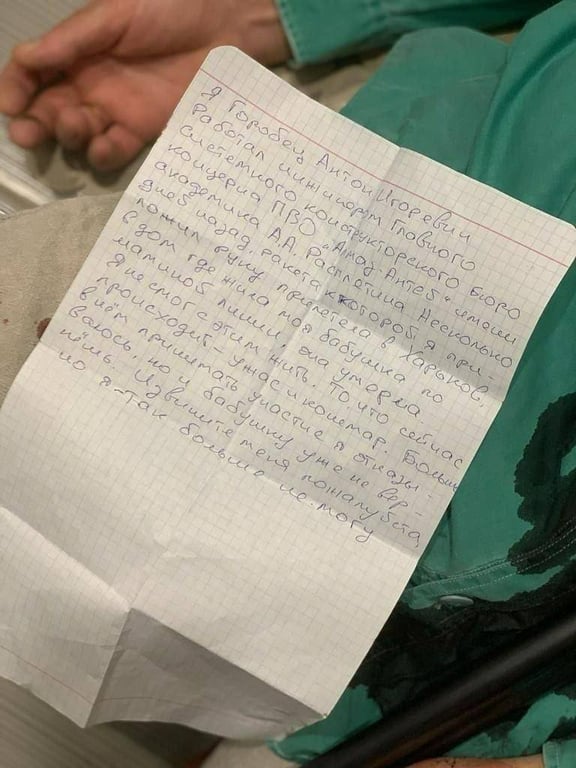 Я Горобец Антон Игоревич
Работал инженером Главного
системного конструкторского Бюро
концерна ПВО "Алмаз-Антей" имени
академика А.А. Расплетина. Несколько
дней назад ракета к которой я при-
ложил руку прилетела в Харьков,
в дом где жила моя бабушка по
маминой линии, она умерла
Я не смог с этим жить. То что сейчас
происходит – ужас и кошмар. Больше
в нём принимать участие я отказы-
ваюсь, но и бабушку уже не вер-
нёшь. Извините меня пожалуйста,
но я так больше не могу